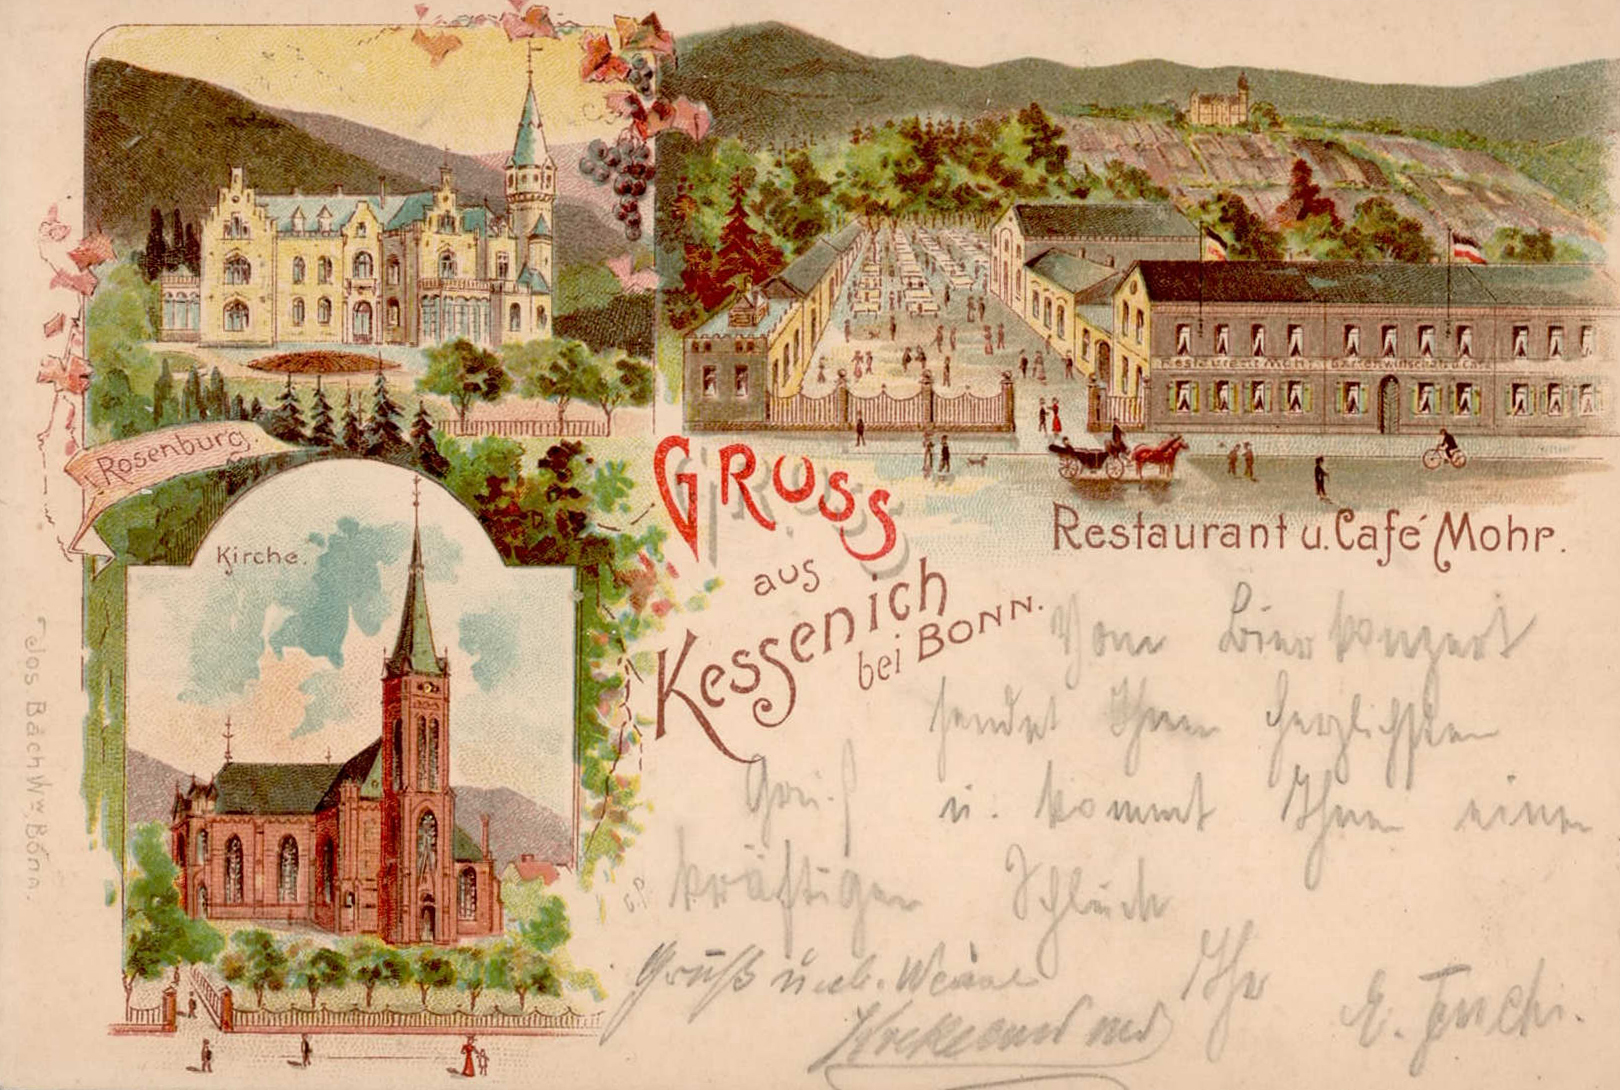 Rosenburg.
Kirche.
Gruss
aus
Kessenich
bei Bonn.
Restaurant u. Café Mohr.
Restaurant Mohr Gartenwirtschaft u Café
Jos. Bach Ww, Bonn.
Vom Bierkonzert
sendet Ihnen herzlichsten
Gruß
u. kommt Ihnen einen
kräftigen Schluck
Ihr
E. Fuchs.
Gruß